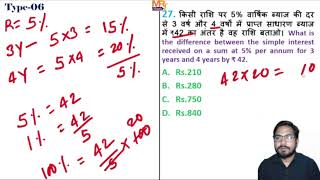 Type-06
MR
R= 5%
3Y - 5×3 = 15%
4Y = 5×4 = 20%
5%
5% = 42
1% = 42/5
100% = 42/5 × 100
20
27. किसी राशि पर 5% वार्षिक ब्याज की दर
से 3 वर्ष और 4 वर्षो में प्राप्त साधारण ब्याज
में ₹42 का अंतर है वह राशि बताओ। What is
the difference between the simple interest
received on a sum at 5% per annum for 3
years and 4 years by ₹ 42.
A. Rs.210
B. Rs.280
C. Rs.750
D. Rs.840
42×20 =